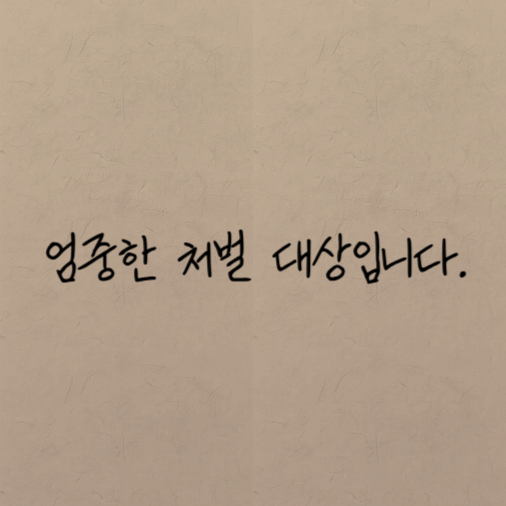 엄중한 처벌 대상입니다.